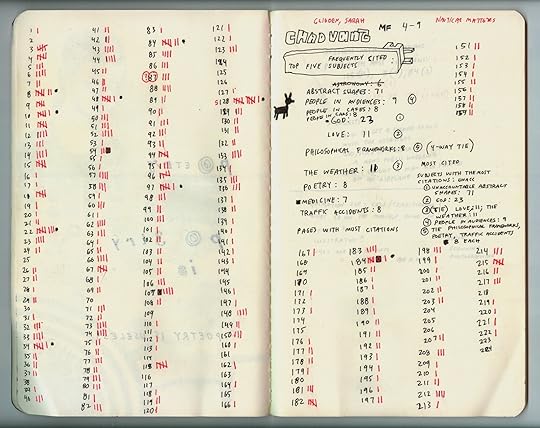 2
3
4
5
6
7
8
9
10
11
12
13
14
15
16
17
18
19
20
21
22
23
24
25
26
27
28
29
30
31
32
33
34
35
36
37
38
39
40
41
42
43
44
45
46
47
48
49
50
51
52
53
54
55
56
57
58
59
60
61
62
63
64
65
66
67
68
69
70
71
72
73
74
75
76
77
78
79
80
81
82
83
84
85
86
87
88
89
90
91
92
93
94
95
96
97
98
99
100
101
102
103
104
105
106
107
108
109
110
111
112
113
114
115
116
117
118
119
120
121
122
123
124
125
126
127
128
129
130
131
132
133
134
135
136
137
138
139
140
141
142
143
144
145
146
147
148
149
150
160
161
162
163
164
165
166
GLIDDEN, SARAH
MF 4-9
NAUTICAL MATTERS
FREQUENTLY CITED:
TOP FIVE SUBJECTS
ASTRONOMY: 6
ABSTRACT SHAPES: 71
PEOPLE IN AUDIENCES: 9 ④
PEOPLE IN CAGES: 8
GOD: 23 ①
LOVE: 11 ②
PHILOSOPHICAL FRAMEWORKS: 8 ⑤ (4-WAY TIE)
THE WEATHER: 10 ③
POETRY: 8
MEDICINE: 7
TRAFFIC ACCIDENTS: 8
PAGES WITH MOST CITATIONS
MOST CITED
SUBJECTS WITH THE MOST
CITATIONS:
① UNACCOUNTABLE ABSTRACT
SHAPES: 71
② GOD: 23
③ (TIE) LOVE: 11; THE
WEATHER: 11
④ PEOPLE IN AUDIENCES: 9
⑤ TIE PHILOSOPHICAL FRAMEWORKS,
POETRY, TRAFFIC ACCIDENTS
8 EACH
151
152
153
154
155
156
157
158
159
167
168
169
170
171
172
173
174
175
176
177
178
179
180
181
182
183
184
185
186
187
188
189
190
191
192
193
194
195
196
197
198
199
200
201
202
203
204
205
206
207
208
209
210
211
212
213
214
215
216
217
218
219
220
221
222
223
224